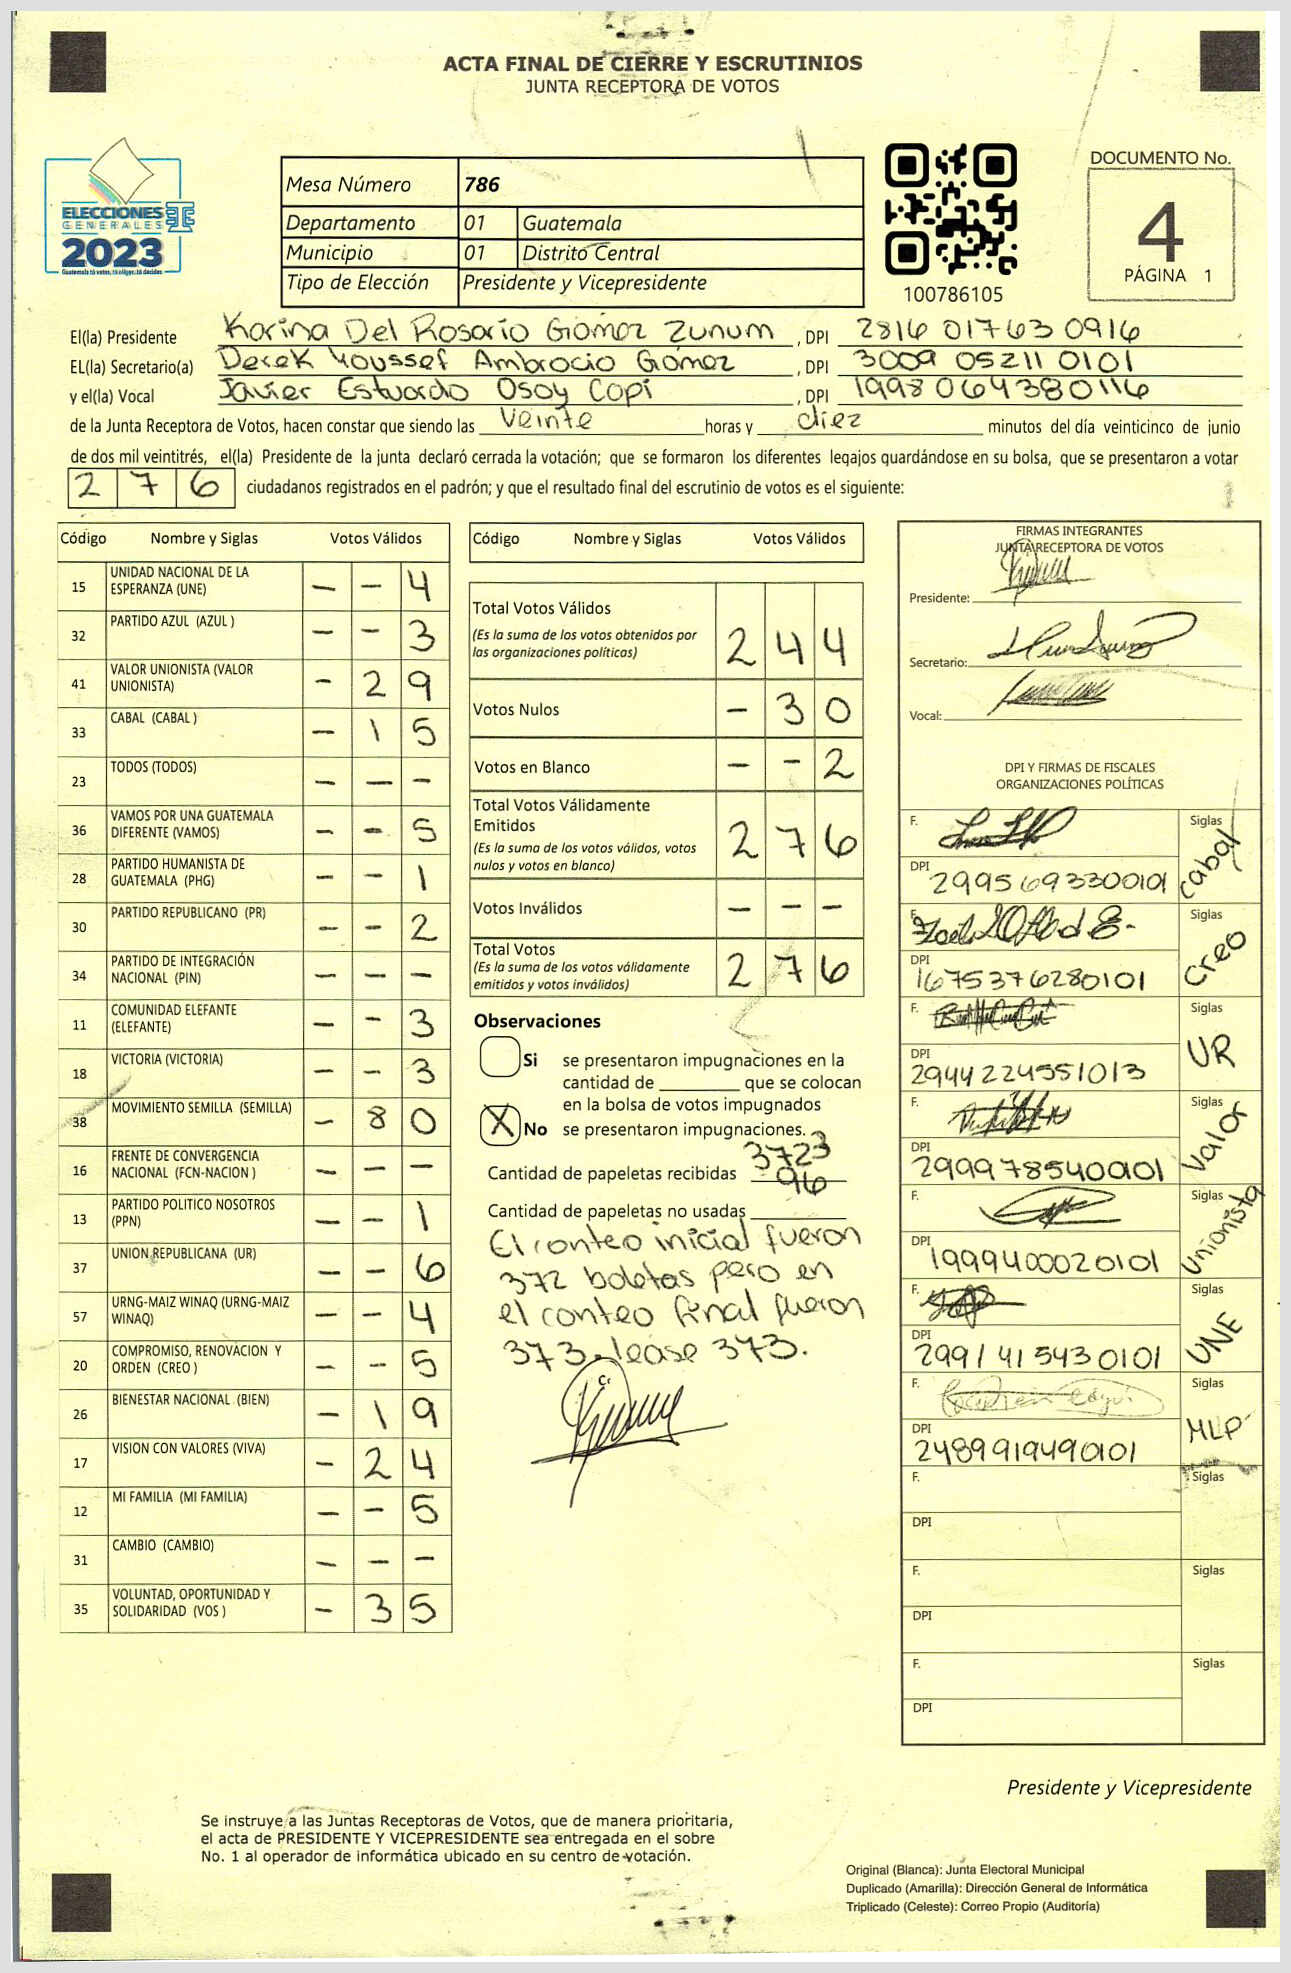 ACTA FINAL DE CIERRE Y ESCRUTINIOS
JUNTA RECEPTORA DE VOTOS
ELECCIONES
GENERALES
2023
Guatemala tú votas, tú eliges, tú decides
Mesa Número 786
Departamento 01 Guatemala
Municipio 01 Distrito Central
Tipo de Elección Presidente y Vicepresidente
100786105
DOCUMENTO No.
4
PÁGINA 1
El(la) Presidente Karina Del Rosario Gómez Zunum, DPI 2816 01763 0916
EL(la) Secretario(a) Derek Youssef Ambrocio Gómez, DPI 3009 05211 0101
y el(la) Vocal Javier Estuardo Osoy Copi, DPI 1998 06438 0116
de la Junta Receptora de Votos, hacen constar que siendo las Veinte horas y diez minutos del día veinticinco de junio
de dos mil veintitrés, el(la) Presidente de la junta declaró cerrada la votación; que se formaron los diferentes legajos quardándose en su bolsa, que se presentaron a votar
2 7 6 ciudadanos registrados en el padrón; y que el resultado final del escrutinio de votos es el siguiente:
Código Nombre y Siglas Votos Válidos
15 UNIDAD NACIONAL DE LA ESPERANZA (UNE) - - 4
32 PARTIDO AZUL (AZUL ) - - 3
41 VALOR UNIONISTA (VALOR UNIONISTA) - 2 9
33 CABAL (CABAL ) - 1 5
23 TODOS (TODOS) - - -
36 VAMOS POR UNA GUATEMALA DIFERENTE (VAMOS) - - 5
28 PARTIDO HUMANISTA DE GUATEMALA (PHG) - - 1
30 PARTIDO REPUBLICANO (PR) - - 2
34 PARTIDO DE INTEGRACIÓN NACIONAL (PIN) - - -
11 COMUNIDAD ELEFANTE (ELEFANTE) - - 3
18 VICTORIA (VICTORIA) - - 3
38 MOVIMIENTO SEMILLA (SEMILLA) - 8 0
16 FRENTE DE CONVERGENCIA NACIONAL (FCN-NACION ) - - -
13 PARTIDO POLITICO NOSOTROS (PPN) - - 1
37 UNION REPUBLICANA (UR) - - 6
57 URNG-MAIZ WINAQ (URNG-MAIZ WINAQ) - - 4
20 COMPROMISO, RENOVACION Y ORDEN (CREO ) - - 5
26 BIENESTAR NACIONAL (BIEN) - 1 9
17 VISION CON VALORES (VIVA) - 2 4
12 MI FAMILIA (MI FAMILIA) - - 5
31 CAMBIO (CAMBIO) - - -
35 VOLUNTAD, OPORTUNIDAD Y SOLIDARIDAD (VOS ) - 3 5
Código Nombre y Siglas Votos Válidos
Total Votos Válidos 2 4 4
(Es la suma de los votos obtenidos por
las organizaciones políticas)
Votos Nulos - 3 0
Votos en Blanco - - 2
Total Votos Válidamente
Emitidos 2 7 6
(Es la suma de los votos válidos, votos
nulos y votos en blanco)
Votos Inválidos - - -
Total Votos 2 7 6
(Es la suma de los votos válidamente
emitidos y votos inválidos)
Observaciones
Si se presentaron impugnaciones en la
cantidad de ________ que se colocan
en la bolsa de votos impugnados
X No se presentaron impugnaciones.
Cantidad de papeletas recibidas 3723
96
Cantidad de papeletas no usadas
El conteo inicial fueron
372 boletas pero en
el conteo final fueron
373. lease 373.
FIRMAS INTEGRANTES
JUNTA RECEPTORA DE VOTOS
Presidente:
Secretario:
Vocal:
DPI Y FIRMAS DE FISCALES
ORGANIZACIONES POLÍTICAS
F. Siglas Cabal
DPI 2995693300101
F. Siglas Creo
DPI 1675376280101
F. Siglas UR
DPI 2944224551013
F. Siglas Valor
DPI 2999785400101
F. Siglas Unionista
DPI 1999400020101
F. Siglas UNE
DPI 2991415430101
F. Siglas MLP
DPI 2489919490101
F. Siglas
DPI
F. Siglas
DPI
F. Siglas
DPI
Presidente y Vicepresidente
Se instruye a las Juntas Receptoras de Votos, que de manera prioritaria,
el acta de PRESIDENTE Y VICEPRESIDENTE sea entregada en el sobre
No. 1 al operador de informática ubicado en su centro de votación.
Original (Blanca): Junta Electoral Municipal
Duplicado (Amarilla): Dirección General de Informática
Triplicado (Celeste): Correo Propio (Auditoría)